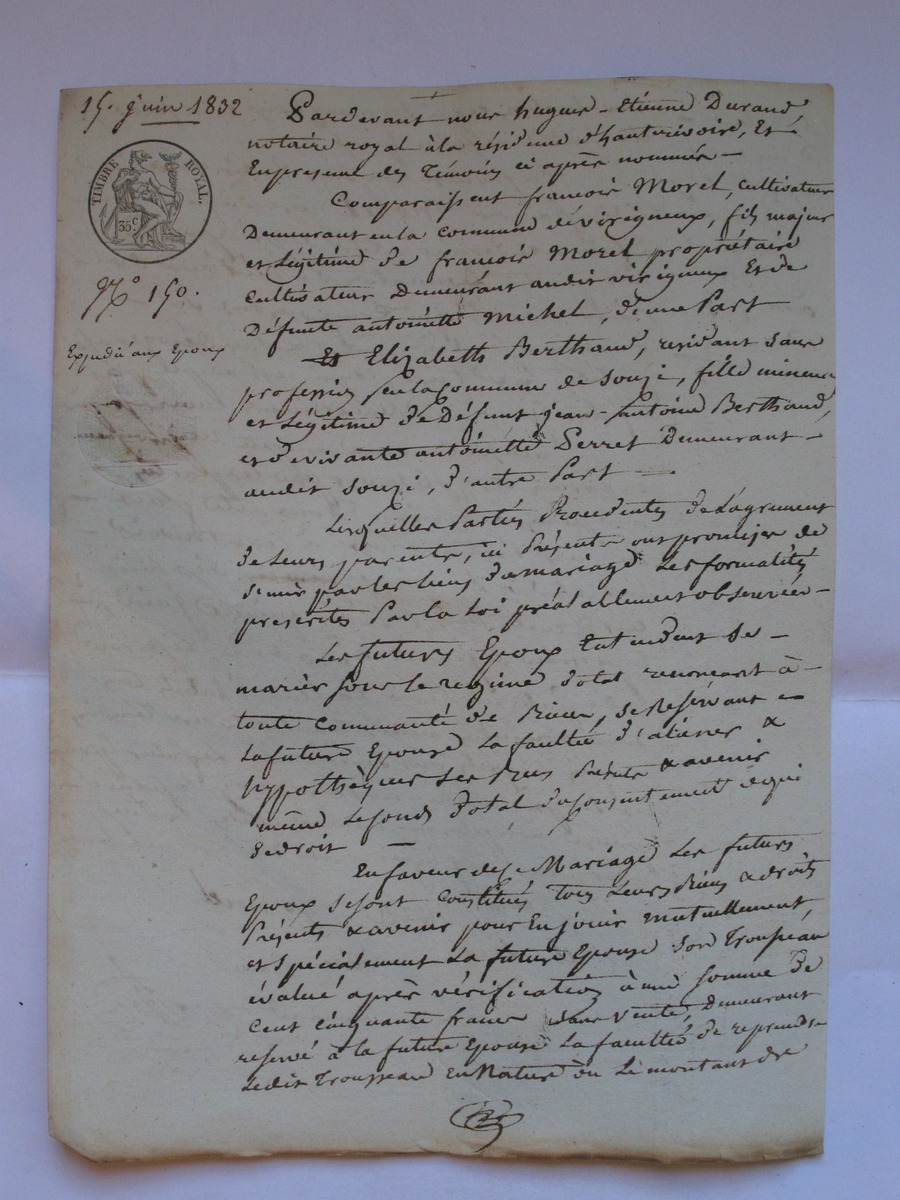 15. juin 1832
TIMBRE ROYAL.
35 c
N.o 150.
Expédié aux Epoux
Pardevant nous hugues-Etienne Durand,
notaire royal à la résidence d'hauterivoire, Et
En presence des Témoins ci après nommés —
Comparaissent francois Morel, cultivateur
Demeurant en la commune de virigneux, fils majeur
et Légitime de francois Morel propriétaire
Cultivateur Demeurant audit virigneux Et de
Défunte antoinette Michel, d'une Part
Et Elizabeth Berthaud, residant sans
profession en la Commune de Souzi, fille mineure
et Légitime de Défunt jean-Antoine Berthaud,
et de vivante antoinette Perret Demeurant —
audit Souzi, d'autre Part —
Lesquelles Parties Procedentes de L'agrement
de Leurs parents, ici Présents ont promis de
s'unir par les liens du mariage Les formalités
prescrites Par la Loi préalablement observées —
Les futurs Epoux Entendent se —
marier sous le regime dotal renoncant à —
toute Communauté de Biens, se Réservant
La future Epouse La faculté d'aliener &
hypothèquer Ses Biens Présents & avenir
même Le fonds dotal du consentement de qui
de droit —
En faveur de ce Mariage Les futurs
Epoux se sont Constitués tous Leurs Biens & droits
Présents & avenir pour En jouir mutuellement,
et spécialement La future Epouse son Trousseau
évalué après vérification à une somme de
Cent cinquante francs sans vente, Demeurant
reservé à la future Epouse La faculté de reprendre
Ledit Trousseau En Nature ou Le montant de